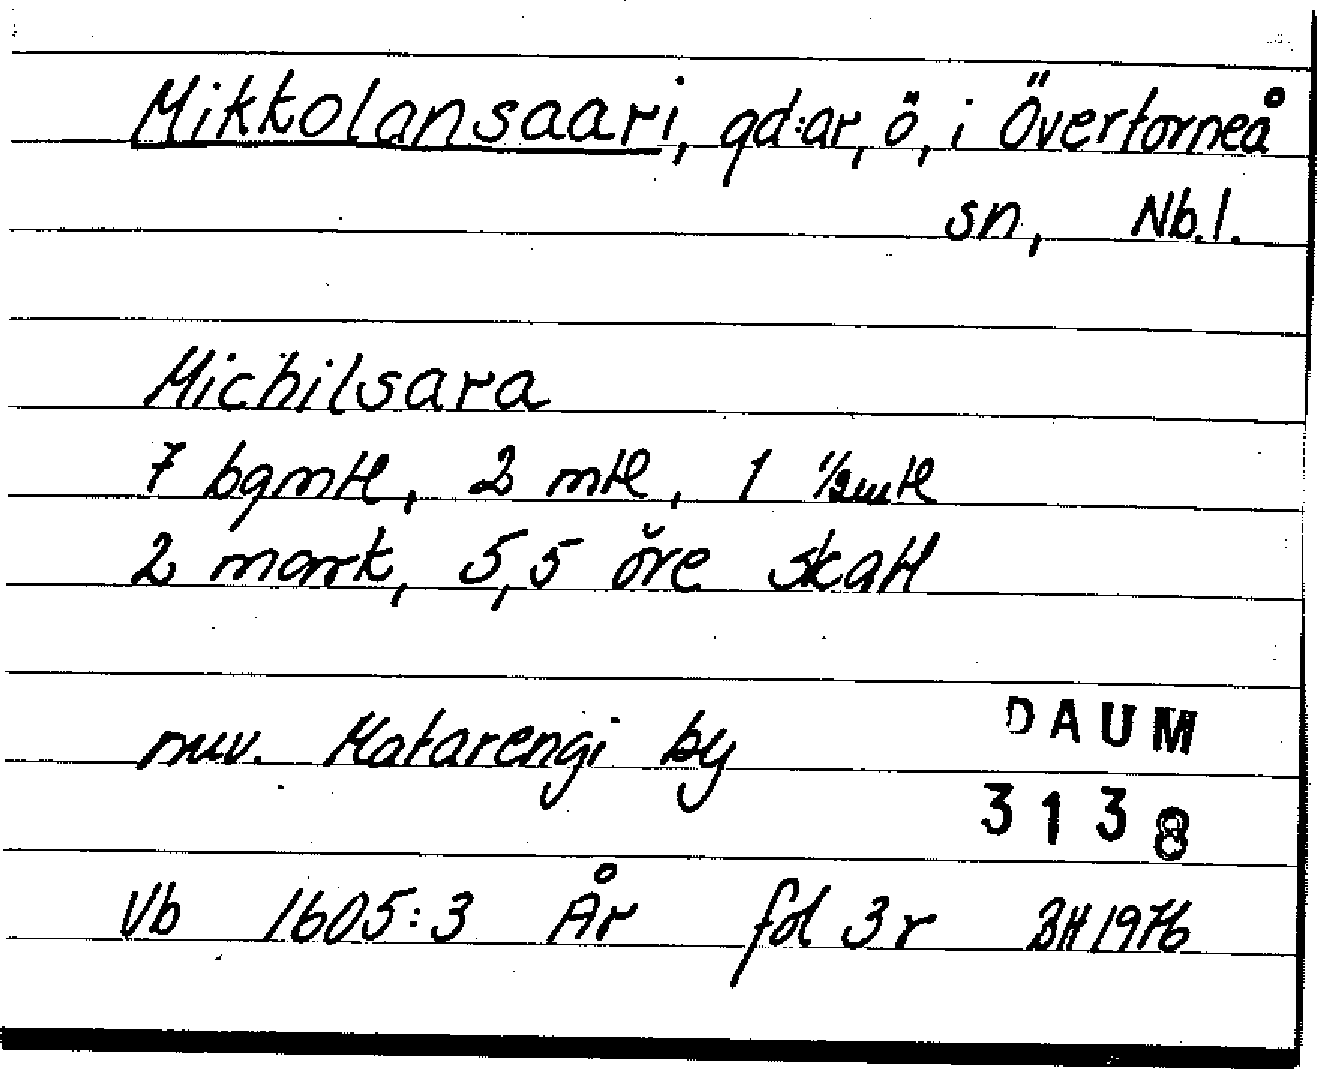 Mikkolansaari, gd:ar, ö, i Övertorneå
sn, Nb.l.
Michilsara
7 bgmtl, 2 mtl, 1 1/2mtl
2 mark, 5,5 öre skatt
nuv. Matarengi by
DAUM
3138
Vb 1605:3 År fol 3r BH 1976